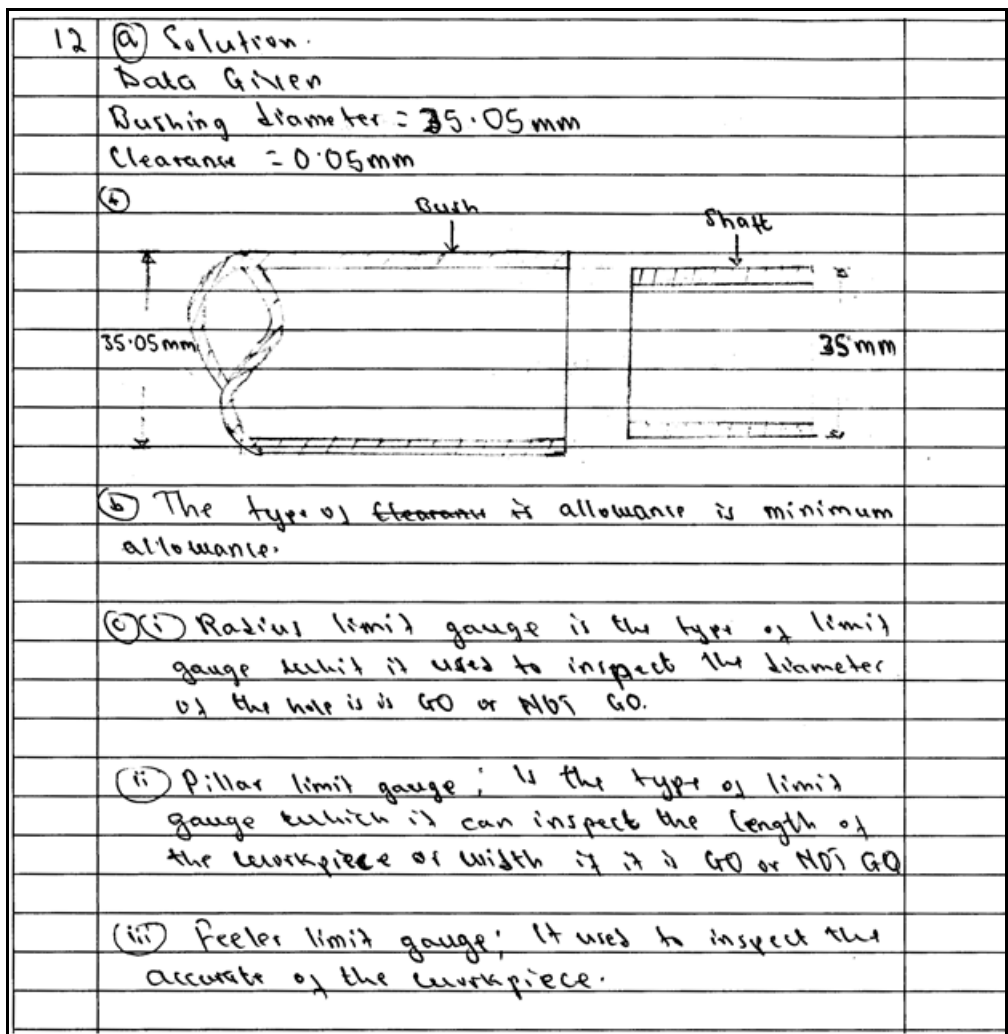 12 (a) Solution.
Data Given
Bushing diameter = 35.05mm
Clearance = 0.05mm
Bush
Shaft
35.05mm
35mm
(b) The type of Clearance is allowance is minimum
allowance.
(c) (i) Radius limit gauge is the type of limit
gauge it used to inspect the diameter
of the hole is is GO or NOT GO.
(ii) Pillar limit gauge; is the type of limit
gauge which it can inspect the length of
the workpiece or width if it is GO or NOT GO
(iii) Feeler limit gauge; It used to inspect the
accurate of the workpiece.